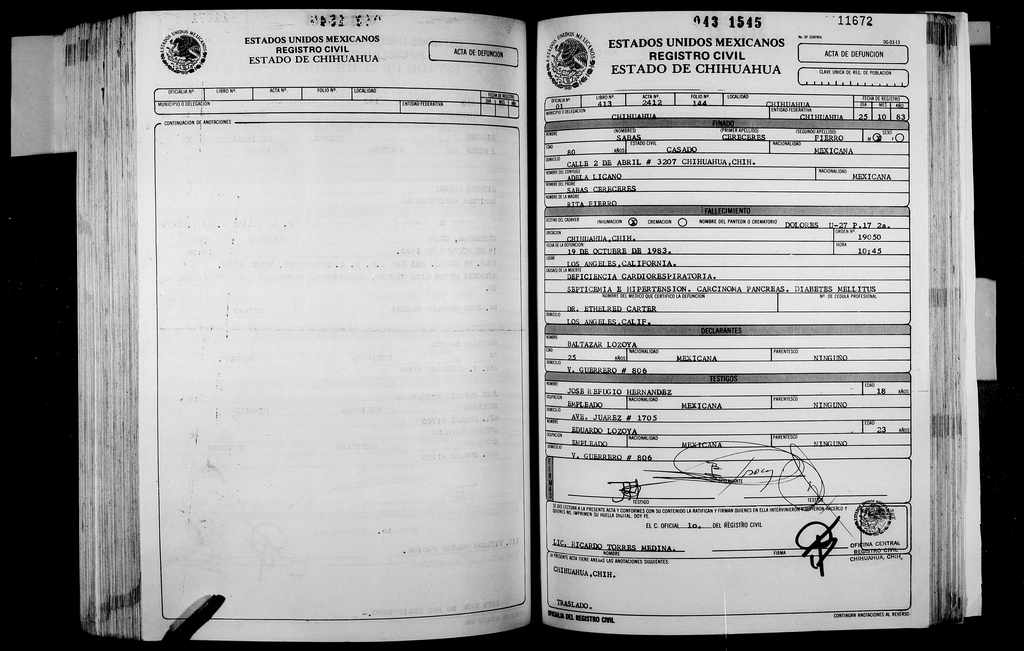 ESTADOS UNIDOS MEXICANOS
REGISTRO CIVIL
ESTADO DE CHIHUAHUA
ACTA DE DEFUNCION
OFICIALIA Nº. LIBRO Nº. ACTA Nº. FOLIO Nº. LOCALIDAD FECHA DE REGISTRO
DIA MES AÑO
MUNICIPIO O DELEGACION ENTIDAD FEDERATIVA
CONTINUACION DE ANOTACIONES
043 1545 11672
ESTADOS UNIDOS MEXICANOS
REGISTRO CIVIL
ESTADO DE CHIHUAHUA
ACTA DE DEFUNCION
CLAVE UNICA DE REG. DE POBLACION
OFICIALIA Nº LIBRO Nº. ACTA Nº. FOLIO Nº. LOCALIDAD FECHA DE REGISTRO
01 413 2412 144 CHIHUAHUA DIA MES AÑO
MUNICIPIO O DELEGACION ENTIDAD FEDERATIVA
CHIHUAHUA CHIHUAHUA 25 10 83
FINADO
NOMBRE (NOMBRES) (PRIMER APELLIDO) (SEGUNDO APELLIDO) SEXO
SABAS CERECERES FIERRO M X F
EDAD ESTADO CIVIL NACIONALIDAD
80 AÑOS CASADO MEXICANA
DOMICILIO
CALLE 2 DE ABRIL # 3207 CHIHUAHUA,CHIH.
NOMBRE DEL CONYUGE NACIONALIDAD
ADELA LICANO MEXICANA
NOMBRE DEL PADRE
SABAS CERECERES
NOMBRE DE LA MADRE
RITA FIERRO
FALLECIMIENTO
DESTINO DEL CADAVER INHUMACION X CREMACION NOMBRE DEL PANTEON O CREMATORIO DOLORES U-27 P.17 2a.
UBICACION ORDEN Nº.
CHIHUAHUA,CHIH. 19050
FECHA DE LA DEFUNCION HORA
19 DE OCTUBRE DE 1983. 10:45
LUGAR
LOS ANGELES,CALIFORNIA.
CAUSA(S) DE LA MUERTE
DEFICIENCIA CARDIORESPIRATORIA.
SEPTICEMIA E HIPERTENSION. CARCINOMA PANCREAS. DIABETES MELLITUS
NOMBRE DEL MEDICO QUE CERTIFICO LA DEFUNCION Nº. DE CEDULA PROFESIONAL
DR. ETHELRED CARTER
DOMICILIO
LOS ANGELES,CALIF.
DECLARANTES
NOMBRE
BALTAZAR LOZOYA
EDAD NACIONALIDAD PARENTESCO
25 AÑOS MEXICANA NINGUNO
DOMICILIO
V. GUERRERO # 806
TESTIGOS
NOMBRE EDAD
JOSE REFUGIO HERNANDEZ 18 AÑOS
OCUPACION NACIONALIDAD PARENTESCO
EMPLEADO MEXICANA NINGUNO
DOMICILIO
AVE. JUAREZ # 1705
NOMBRE EDAD
EDUARDO LOZOYA 23 AÑOS
OCUPACION NACIONALIDAD PARENTESCO
EMPLEADO MEXICANA NINGUNO
DOMICILIO
V. GUERRERO # 806
FIRMAS
DECLARANTE
TESTIGO TESTIGO
SE DIO LECTURA A LA PRESENTE ACTA Y CONFORMES CON SU CONTENIDO LA RATIFICAN Y FIRMAN QUIENES EN ELLA INTERVINIERON Y SUPIERON HACERLO Y
QUIENES NO, IMPRIMEN SU HUELLA DIGITAL. DOY FE.
EL C. OFICIAL 1o. DEL REGISTRO CIVIL
LIC. RICARDO TORRES MEDINA.
NOMBRE FIRMA
OFICINA CENTRAL
REGISTRO CIVIL
CHIHUAHUA, CHIH.
LA PRESENTE ACTA TIENE ANEXAS LAS ANOTACIONES SIGUIENTES:
CHIHUAHUA,CHIH.
TRASLADO.
OFICIALIA DEL REGISTRO CIVIL CONTINUAN ANOTACIONES AL REVERSO